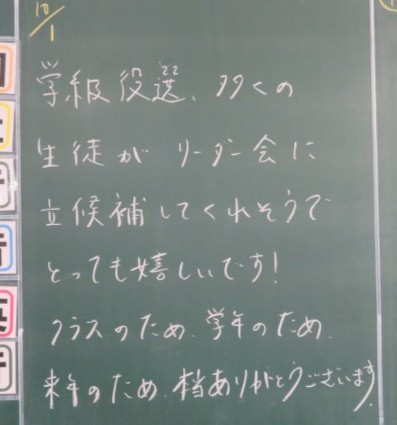 10/1
学級役選、多くの
生徒がリーダー会に
立候補してくれそうで
とっても嬉しいです!
クラスのため、学年のため、
来年のため、本当ありがとうございます。